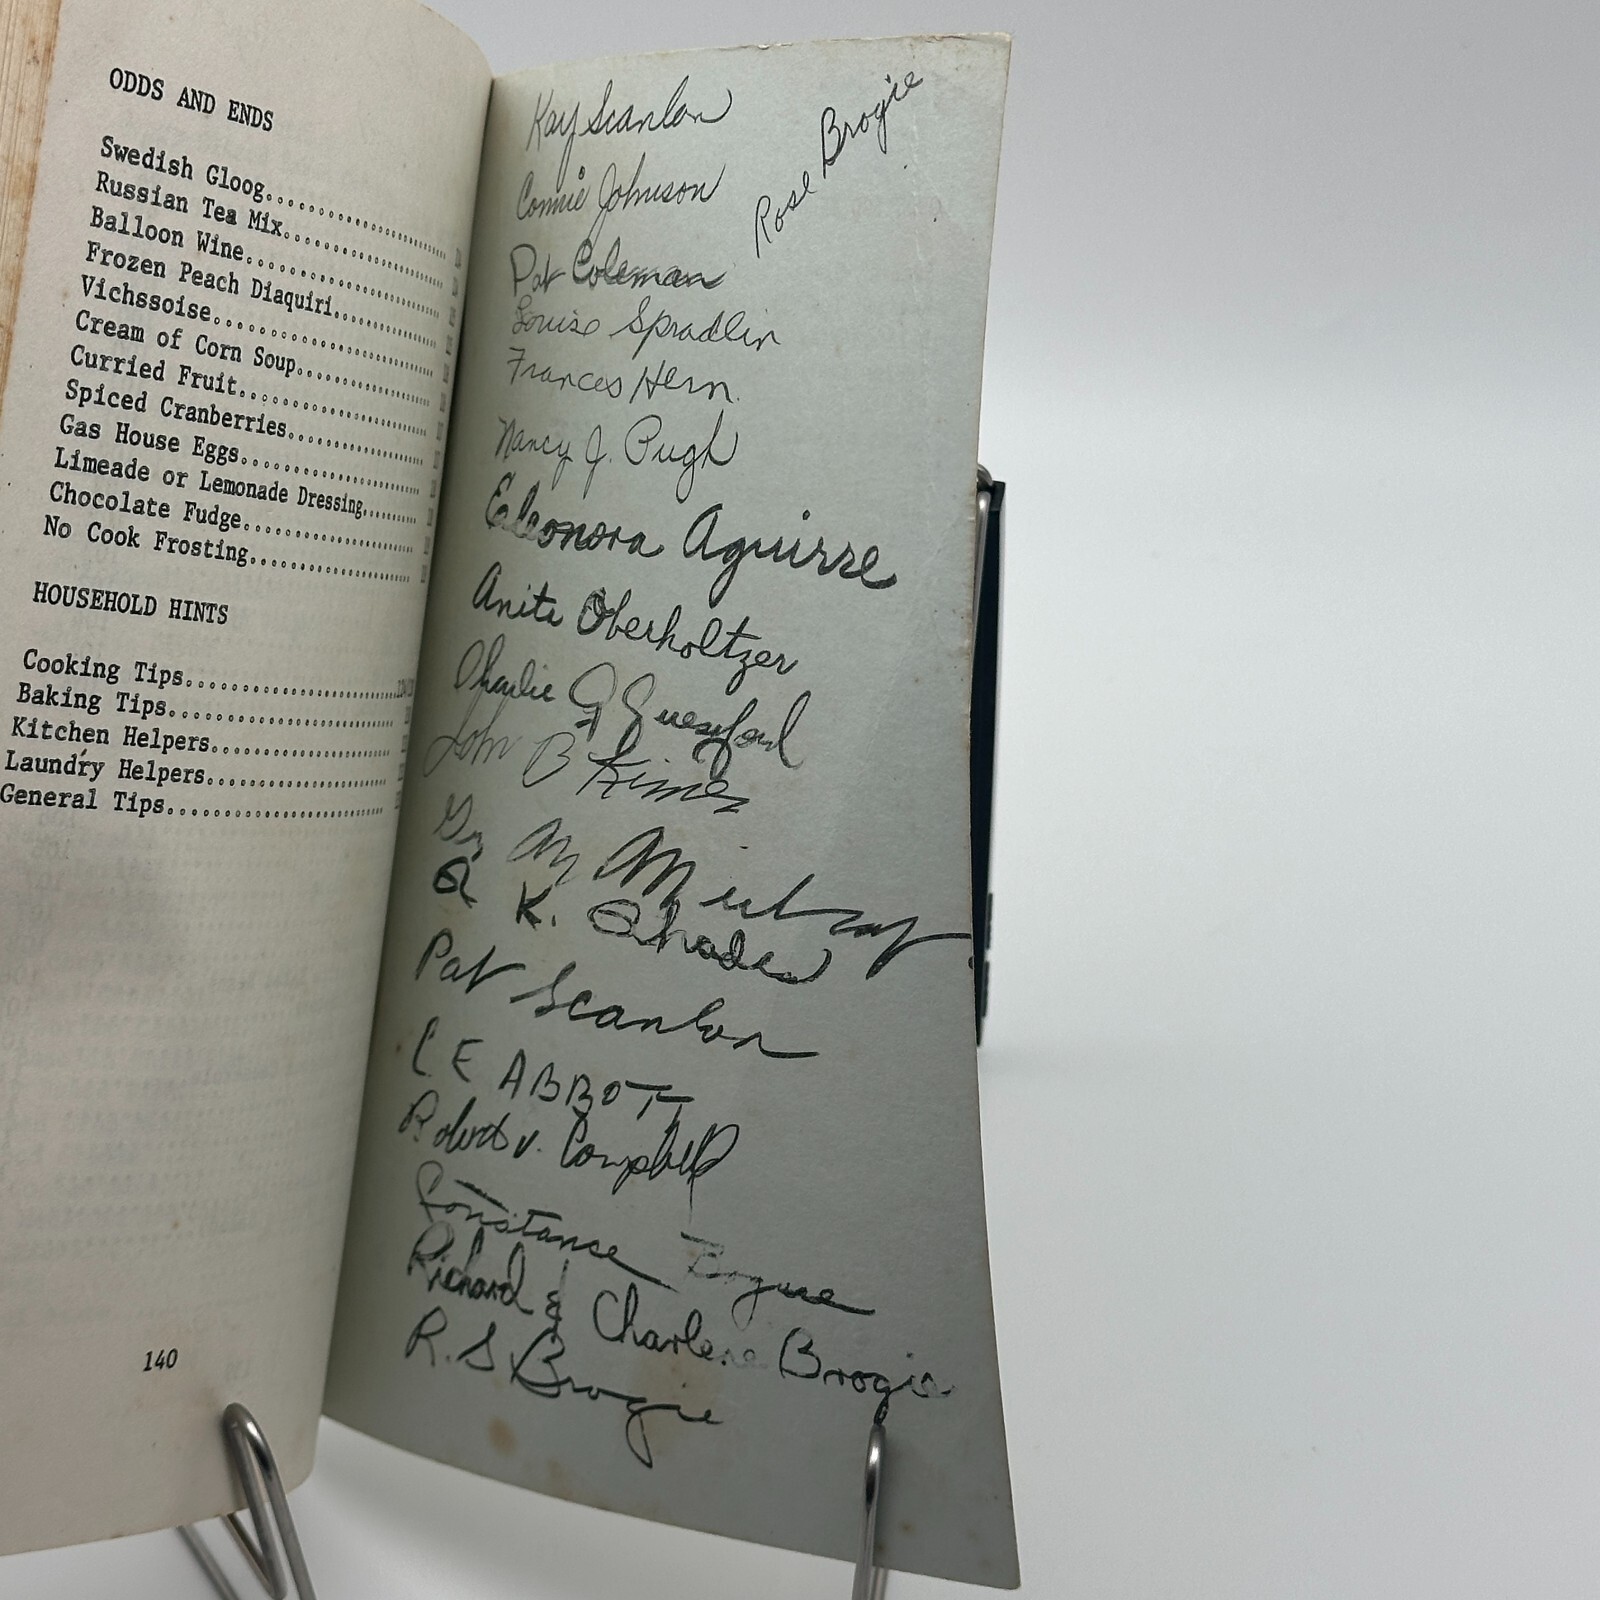 ODDS AND ENDS
Swedish Gloog
Russian Tea Mix
Balloon Wine
Frozen Peach Diaquiri
Vichssoise
Cream of Corn Soup
Curried Fruit
Spiced Cranberries
Gas House Eggs
Limeade or Lemonade Dressing
Chocolate Fudge
No Cook Frosting
HOUSEHOLD HINTS
Cooking Tips
Baking Tips
Kitchen Helpers
Laundry Helpers
General Tips
140
Kay Scanlon
Rose Brogie
Connie Johnson
Pat Coleman
Louise Spradlin
Frances Hern
Nancy J. Pugh
Eleonora Aguirre
Anita Oberholtzer
Charlie G
John B Kimes
M
K. Rhodes
Pat Scanlon
C E ABBOTT
Robert V. Campbell
Constance Bogue
Richard & Charlene Brogie
R. S Brogie